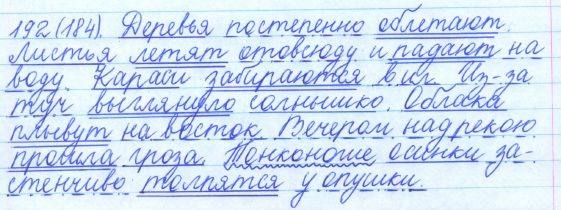 192(184). Деревья постепенно облетают.
Листья летят отовсюду и падают на
воду. Караси забираются в ил. Из-за
туч выглянуло солнышко. Облака
плывут на восток. Вечером над рекою
прошла гроза. Тонконогие осинки за-
стенчиво толпятся у опушки.